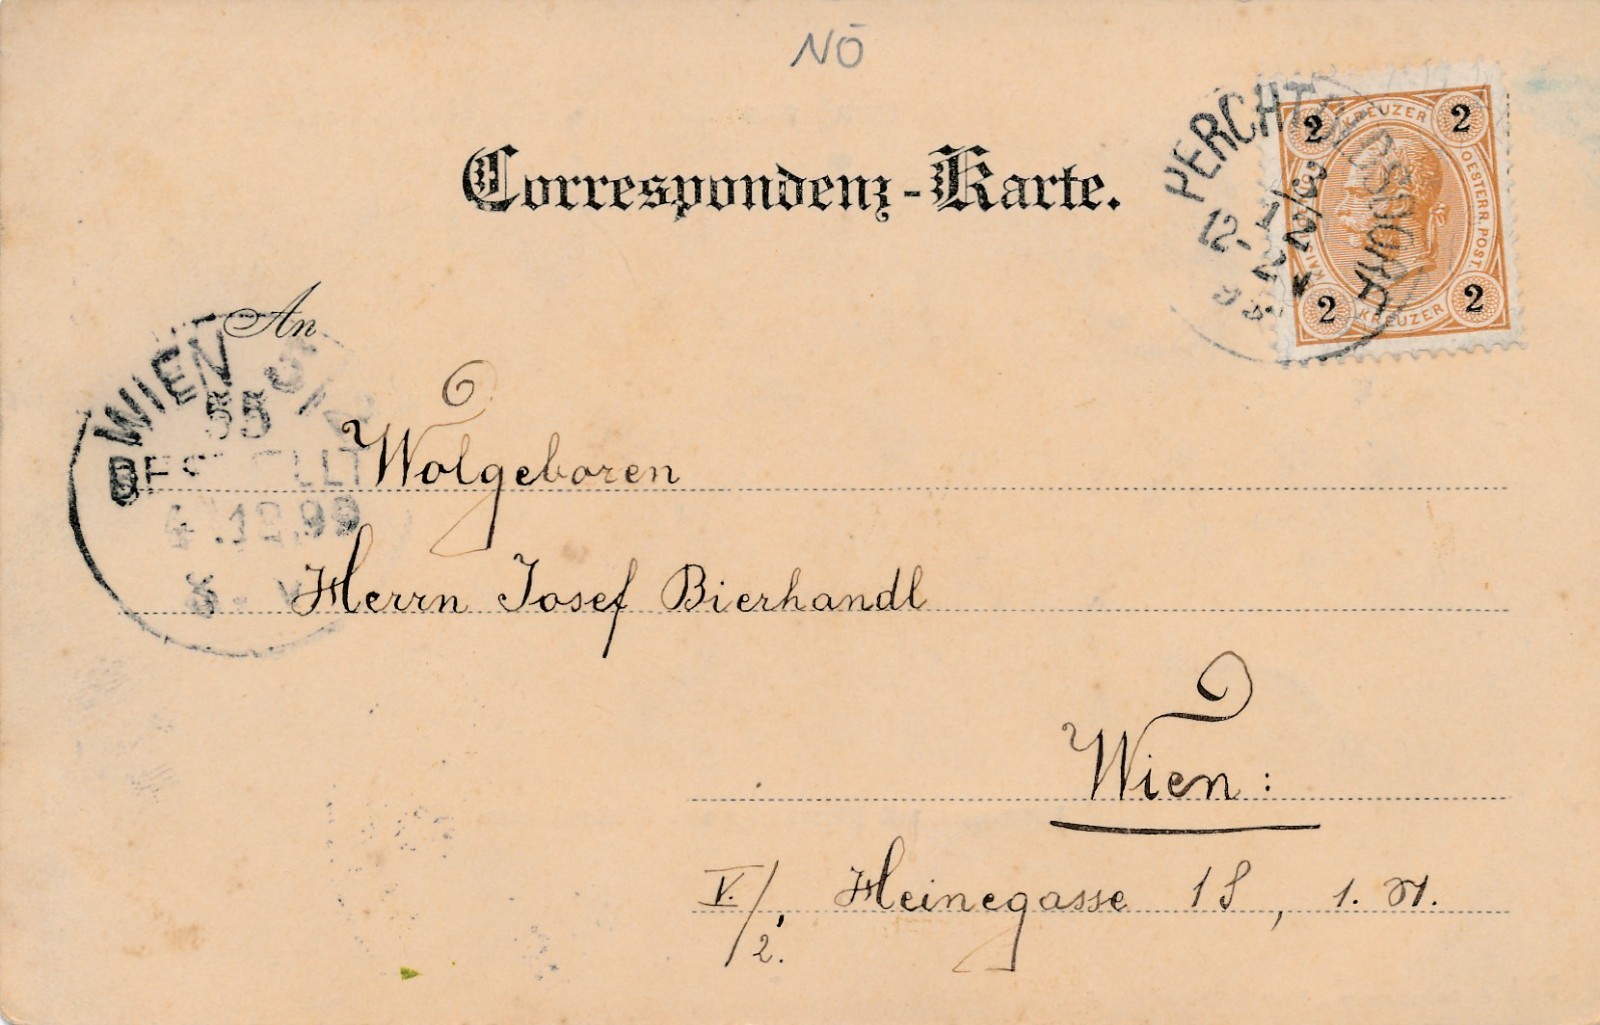 NÖ
Correspondenz-Karte.
2 KREUZER 2
OESTERR. POST
2 KREUZER 2
12. 2
An
WIEN
55
BESTELLT
4.12.99
Wolgeboren
Herrn Josef Bierhandl
Wien:
V./2. Heinegasse 1S, 1. St.